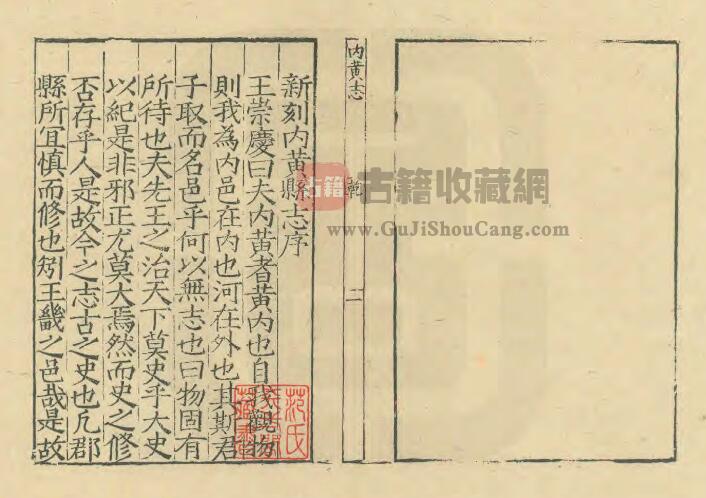 内黄志
乾
二
新刻内黄縣志序
王崇慶曰夫内黄者黄内也自我觀物
則我為内邑在内也河在外也其斯君
子取而名邑乎何以無志也曰物固有
所待也夫先王之治天下莫史乎大史
以紀是非邪正尤莫大焉然而史之修
否存乎人是故今之志古之史也凡郡
縣所宜慎而修也矧王畿之邑哉是故
范氏
古籍
古籍收藏網
www.GuJiShouCang.com